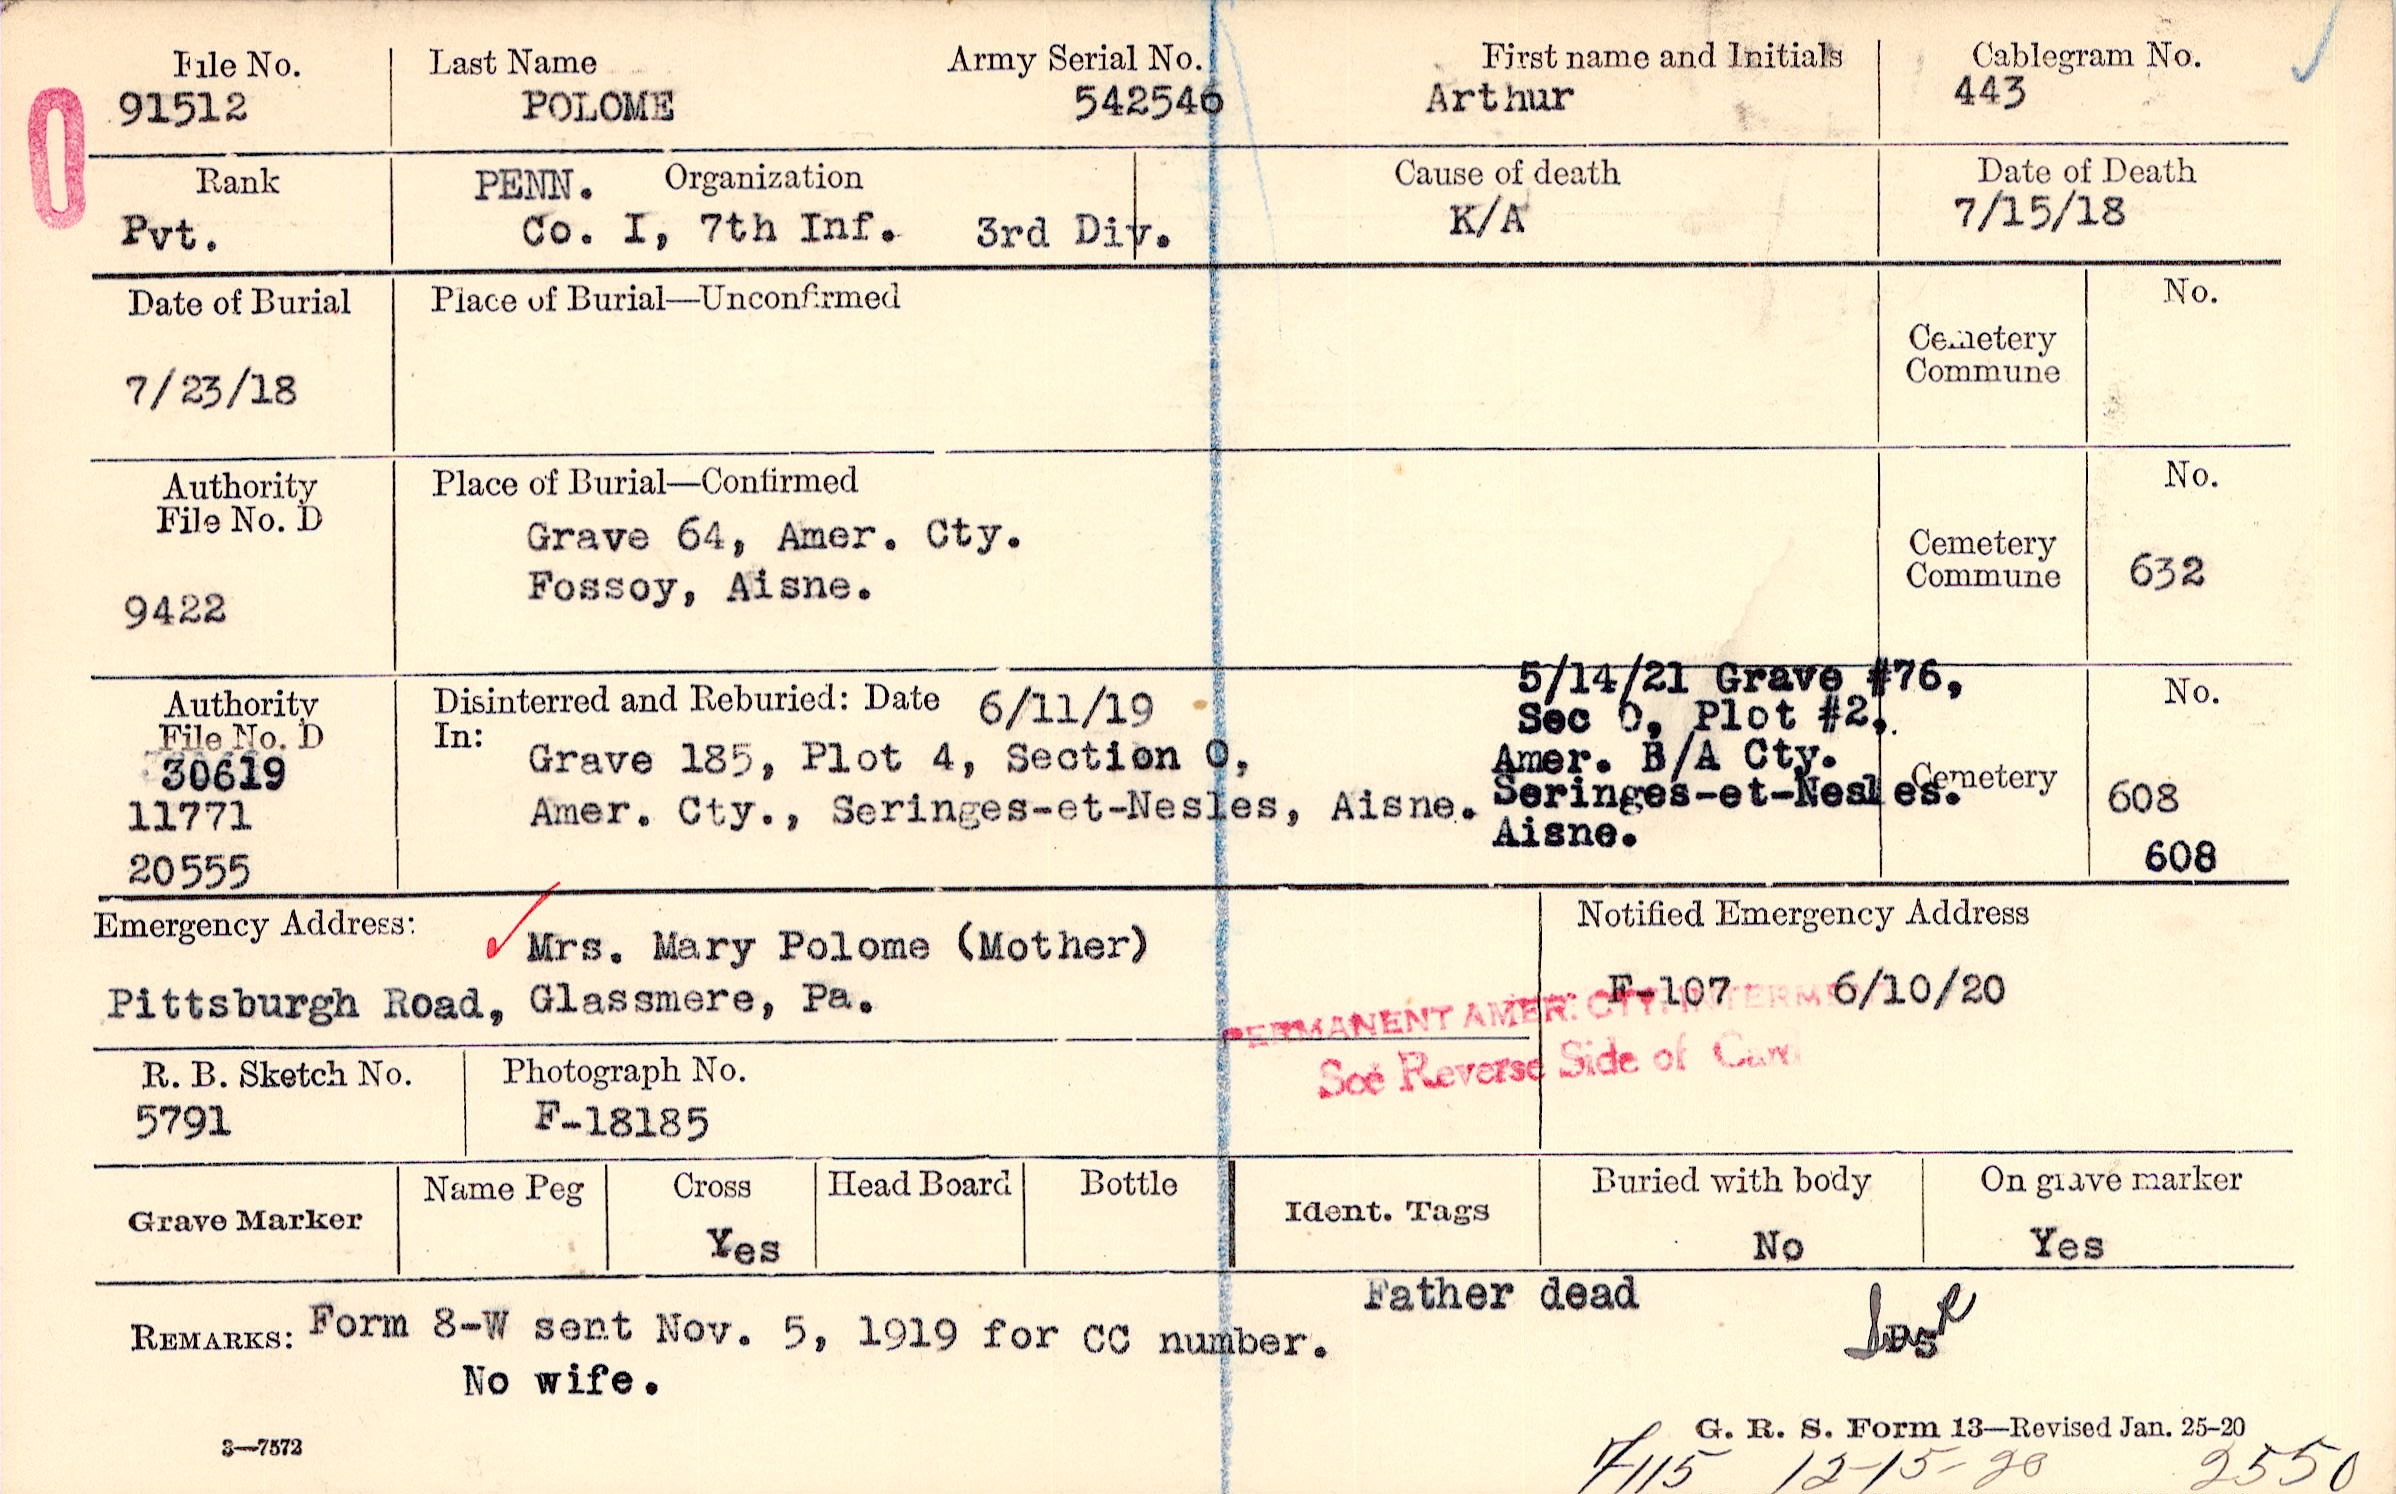 File No. Last Name Army Serial No. First name and Initials Cablegram No.
91512 POLOME 542546 Arthur 443
Rank PENN. Organization Cause of death Date of Death
Pvt. Co. I, 7th Inf. 3rd Div. K/A 7/15/18
Date of Burial Place of Burial—Unconfirmed No.
Cemetery
Commune
7/23/18
Authority Place of Burial—Confirmed No.
File No. D
Grave 64, Amer. Cty. Cemetery
Fossoy, Aisne. Commune 632
9422
Authority Disinterred and Reburied: Date 6/11/19 No.
File No. D In:
30619 Grave 185, Plot 4, Section O,
11771 Amer. Cty., Seringes-et-Nesles, Aisne.
20555
5/14/21 Grave #76,
Sec O, Plot #2,
Amer. B/A Cty.
Seringes-et-Nesles.
Aisne.
Cemetery 608
608
Emergency Address: Mrs. Mary Polome (Mother)
Pittsburgh Road, Glassmere, Pa.
Notified Emergency Address
F-107 6/10/20
PERMANENT AMER. CTY. INTERMENT
See Reverse Side of Card
R. B. Sketch No. Photograph No.
5791 F-18185
Grave Marker Name Peg Cross Head Board Bottle Ident. Tags Buried with body On grave marker
Yes No Yes
Father dead
REMARKS: Form 8-W sent Nov. 5, 1919 for CC number.
No wife.
3—7572 G. R. S. Form 13—Revised Jan. 25-20
12-15-20 2550